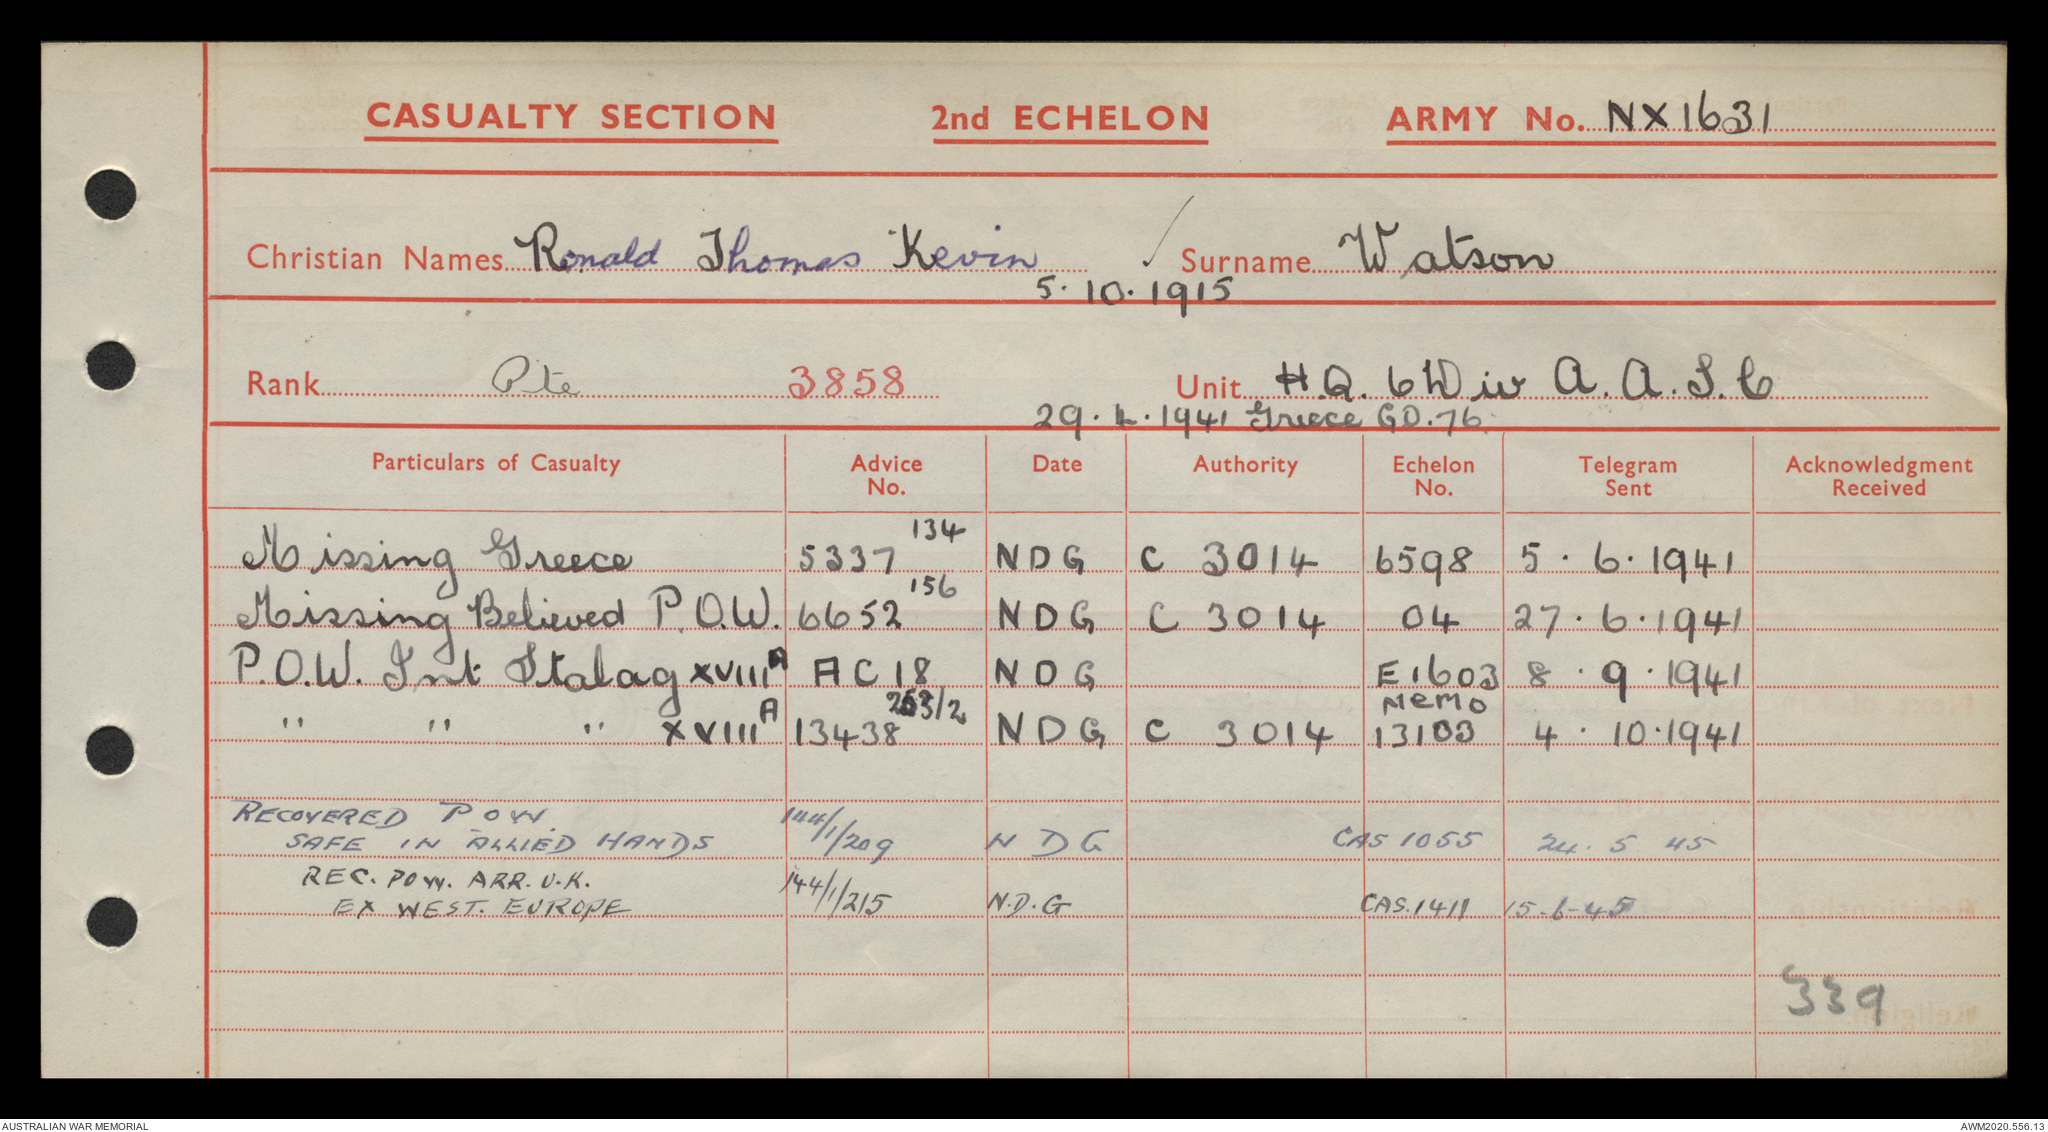 CASUALTY SECTION 2nd ECHELON ARMY No. NX1631
Christian Names Ronald Thomas Kevin Surname Watson
5.10.1915
Rank Pte 3858 Unit H.Q. 6 Div A.A.S.C
29.4.1941 Greece GO.76
Particulars of Casualty Advice No. Date Authority Echelon No. Telegram Sent Acknowledgment Received
134
Missing Greece 5337 NDG C 3014 6598 5.6.1941
156
Missing Believed P.O.W. 6652 NDG C 3014 04 27.6.1941
P.O.W. Int Stalag XVIII A AC 18 NDG E1603 8.9.1941
/2 MEMO
" " " XVIII A 13438 NDG C 3014 13103 4.10.1941
RECOVERED POW. 144/1/209
SAFE IN ALLIED HANDS NDG CAS 1055 24.5.45
REC. POW. ARR. U.K. 144/1/215
EX WEST. EUROPE N.D.G CAS.1411 15-6-45
339
AUSTRALIAN WAR MEMORIAL AWM2020.556.13